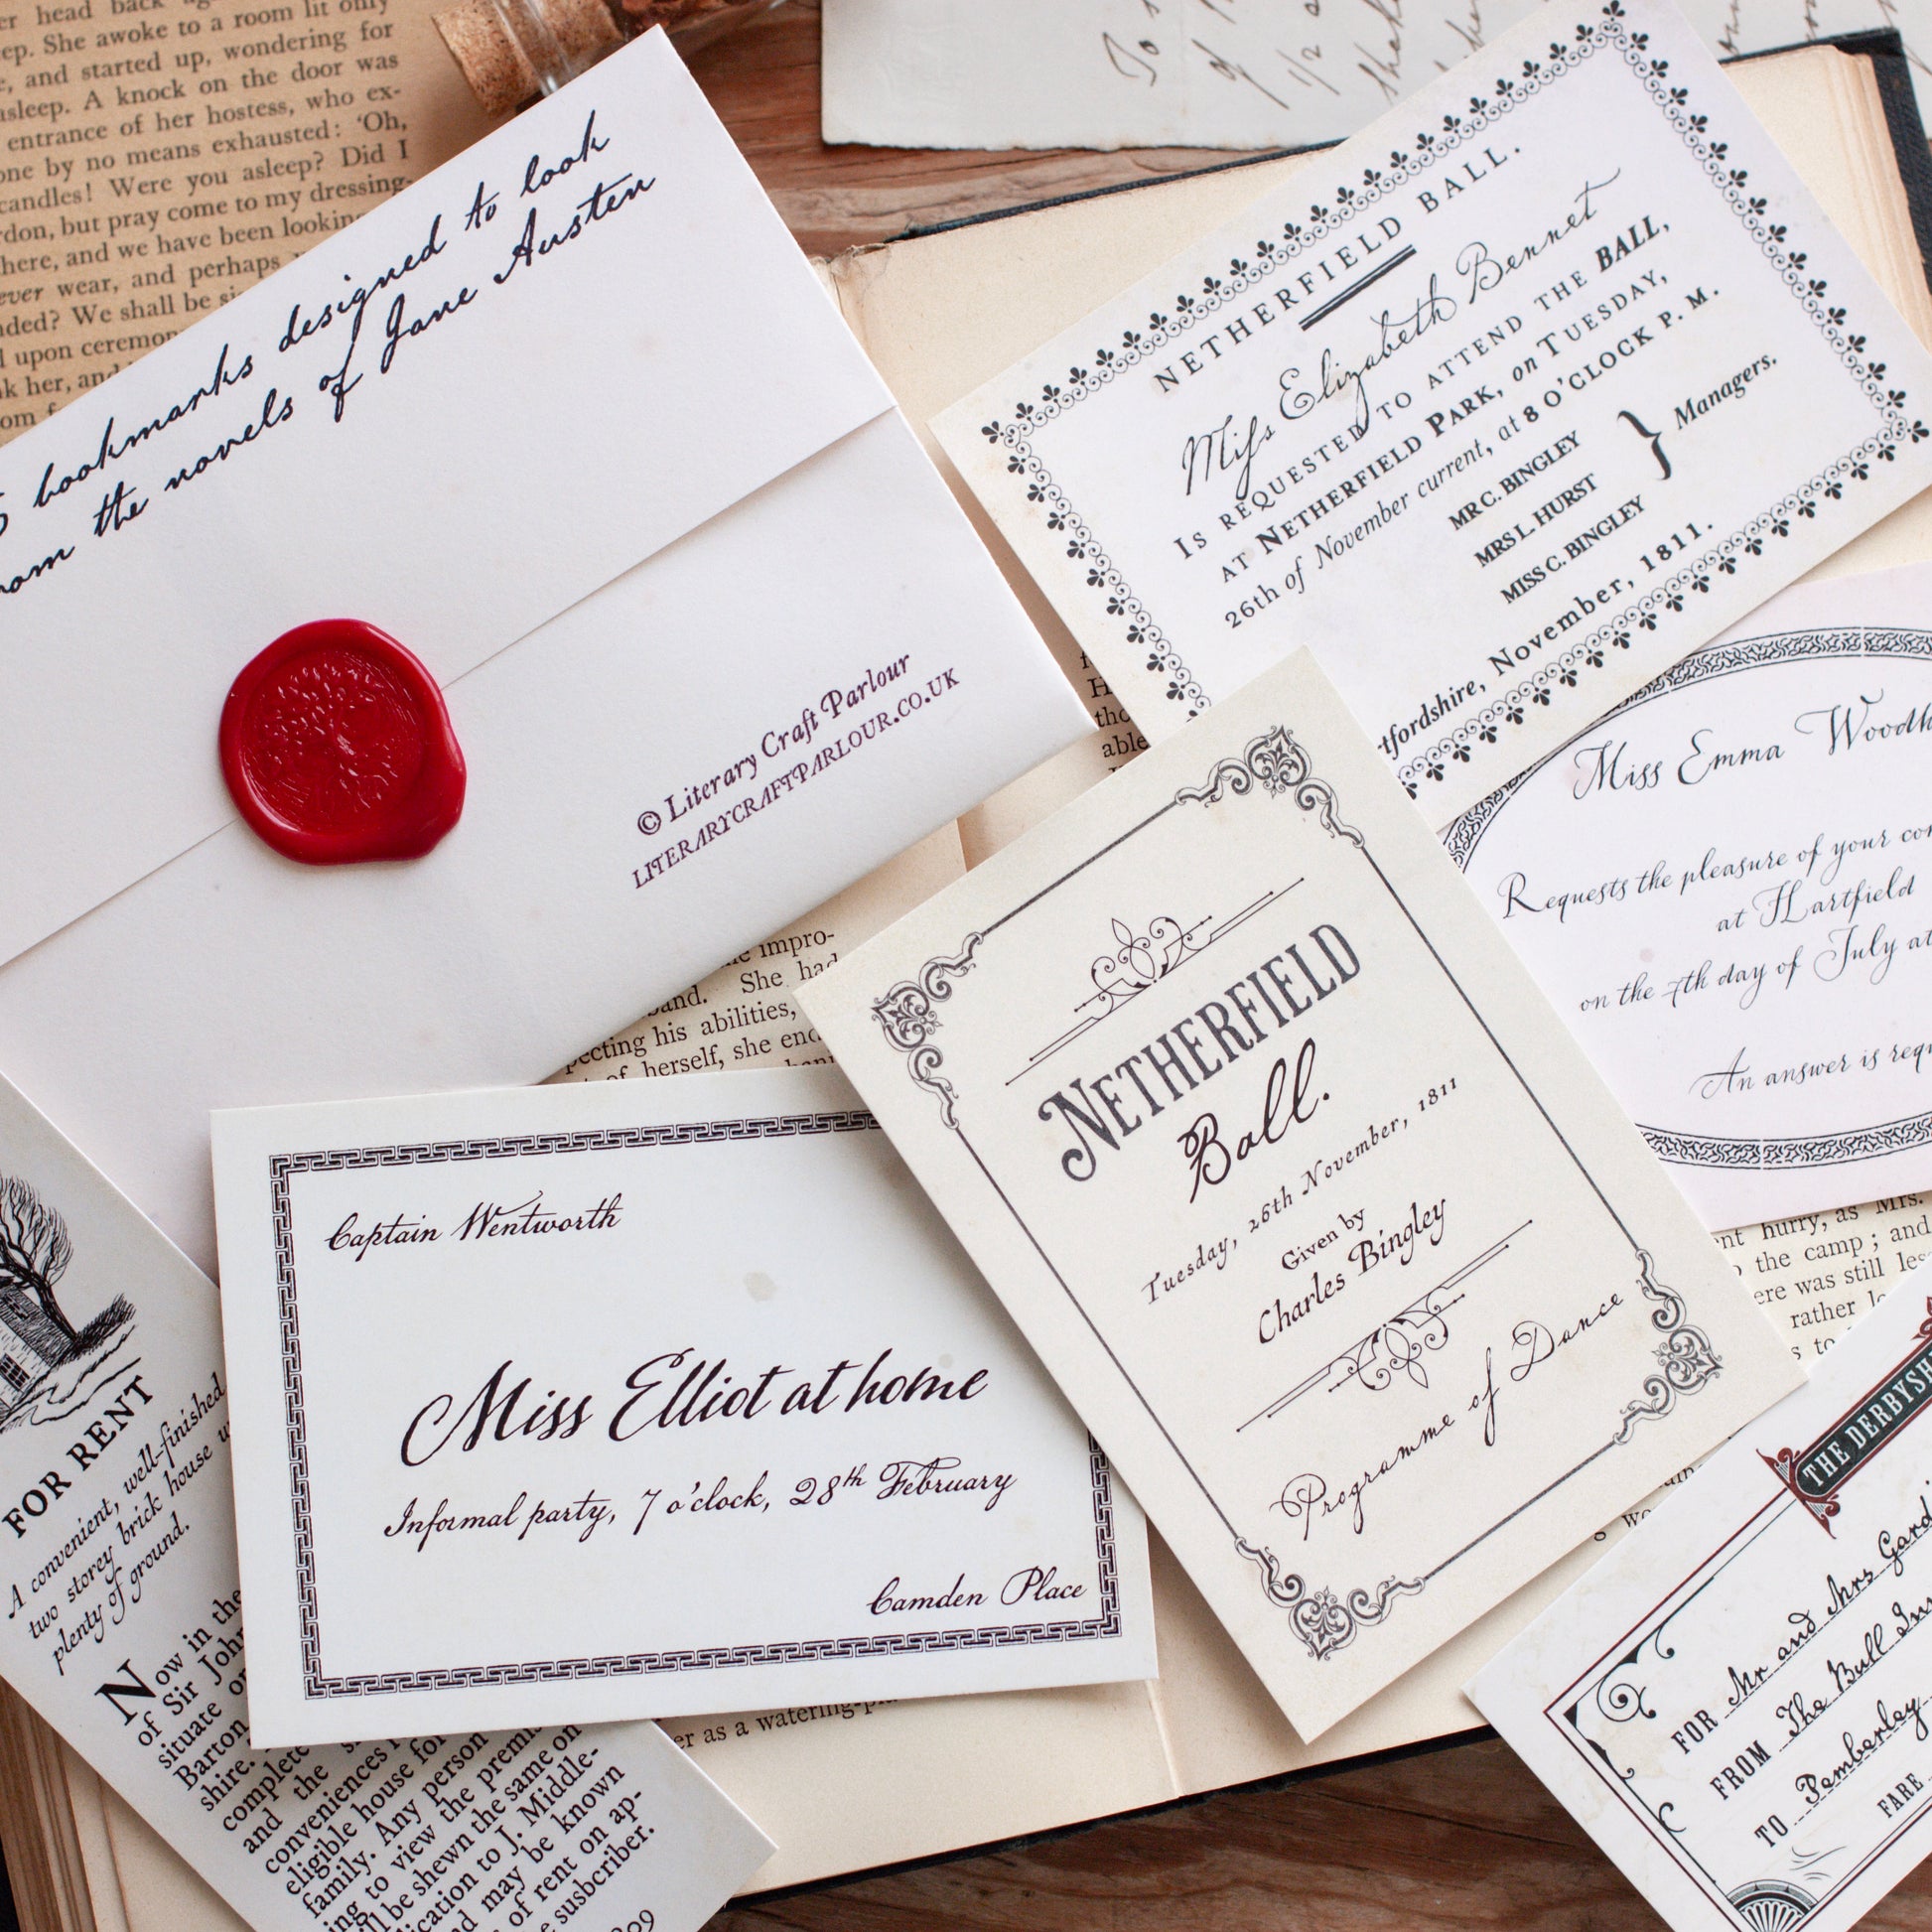 er head back
ep. She awoke to a room lit only
e, and started up, wondering for
asleep. A knock on the door was
entrance of her hostess, who ex-
one by no means exhausted: ‘Oh,
candles! Were you asleep? Did I
rdon, but pray come to my dressing-
here, and we have been looking
ever wear, and perhaps
nded? We shall be
upon ceremon
k her, and
bookmarks designed to look
the novels of Jane Austen
© Literary Craft Parlour
LITERARYCRAFTPARLOUR.CO.UK
To
of
1/2
NETHERFIELD BALL.
Miſs Elizabeth Bennet
IS REQUESTED TO ATTEND THE BALL,
AT NETHERFIELD PARK, on TUESDAY,
26th of November current, at 8 O'CLOCK P. M.
MR C. BINGLEY
MRS L. HURST
MISS C. BINGLEY
} Managers.
tfordshire, November, 1811.
Miss Emma Woodh
Requests the pleasure of your co
at Hartfield
on the 7th day of July at
An answer is requ
NETHERFIELD
Ball.
Tuesday, 26th November, 1811
Given by
Charles Bingley
Programme of Dance
impro-
She had
band.
pecting his abilities,
of herself, she
Captain Wentworth
Miss Elliot at home
Informal party, 7 o'clock, 28th February
Camden Place
FOR RENT
A convenient, well-finished
two storey brick house
plenty of ground.
Now in the
of Sir John
situate
Barton
shire.
complete
and the
conveniences
eligible house for
family. Any person
to view the premis
be shewn the same on
ication to J. Middle-
may be known
of rent on ap-
susbcriber.
er as a watering-
hurry, as Mrs.
the camp; and
ere was still les
rather
THE DERBYSH
FOR Mr and Mrs Gard
FROM The Bull Inn
TO Pemberley
FARE